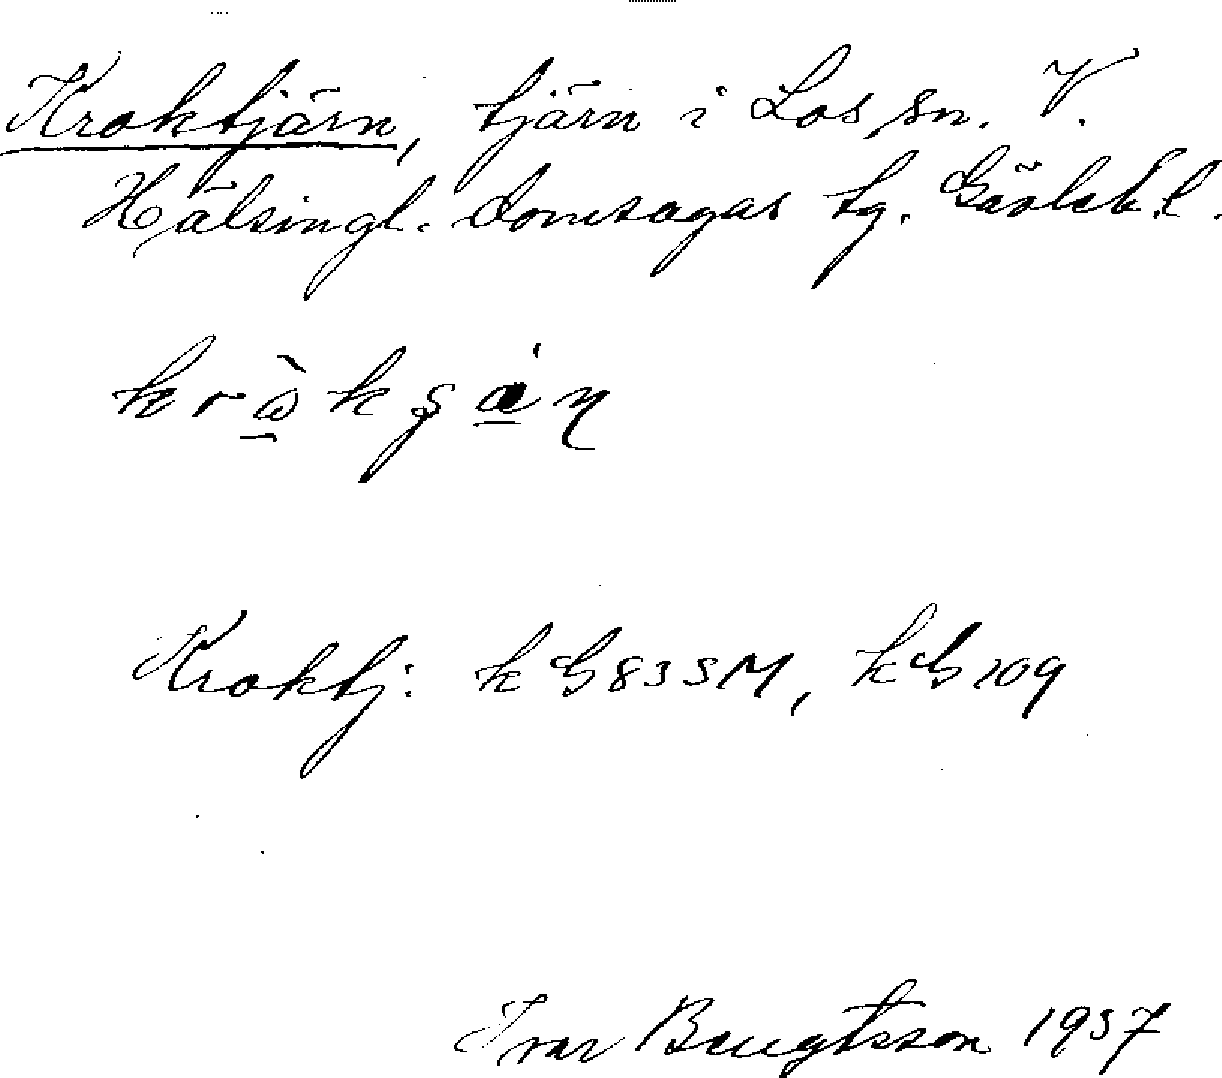 Kroktjärn, tjärn i Los sn. V.
Hälsingl. domsagas tg. Gävleb. l.
Kroktj: k G 83 SM, k G 109
Ivar Bengtsson 1937